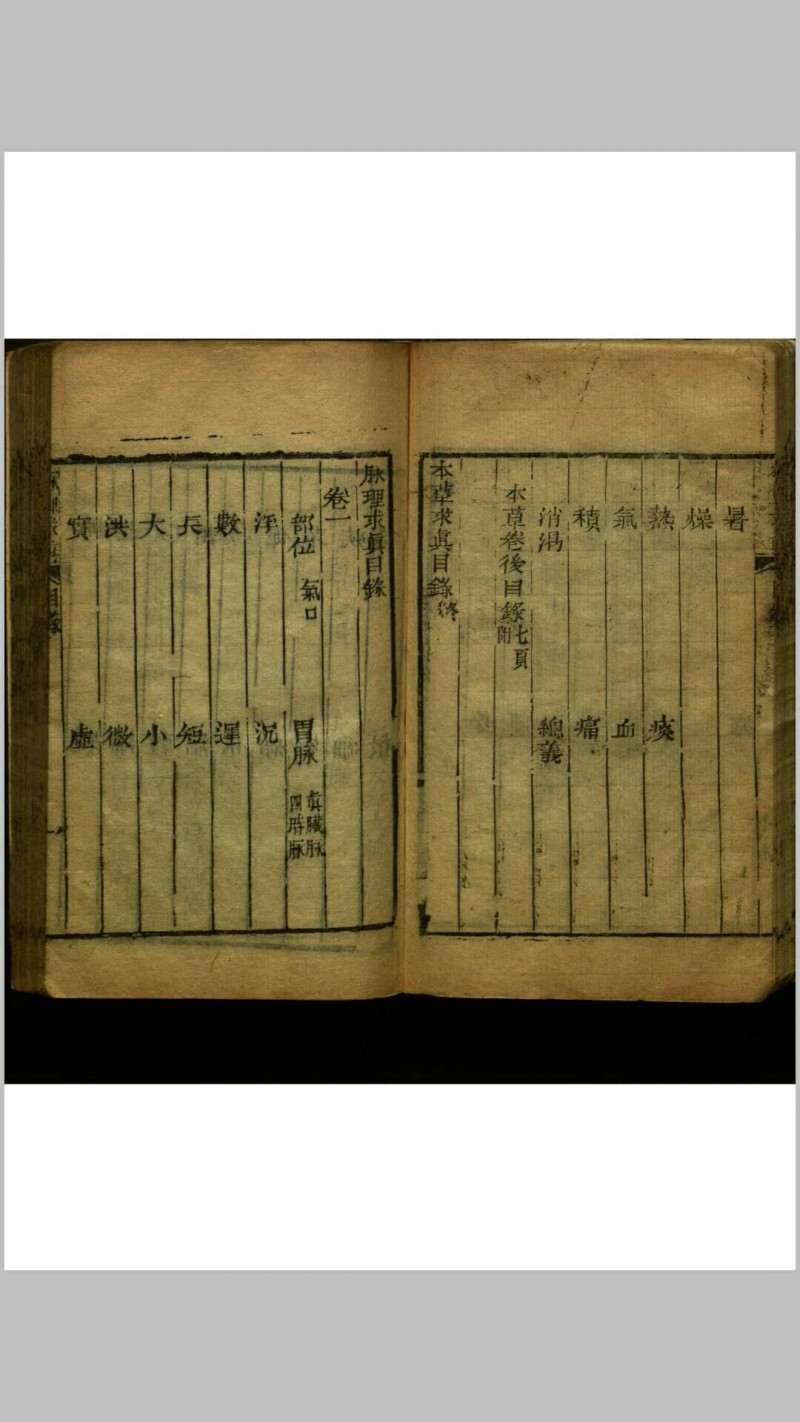 暑
燥
熱　痰
氣　血
積　痛
消渴　總義
本草卷後目錄附七頁
本草求眞目錄終
脉理求眞目錄
卷一
部位　氣口　胃脉　眞臟脉　四時脉
浮　沉
數　遲
長　短
大　小
洪　微
實　虛
目錄